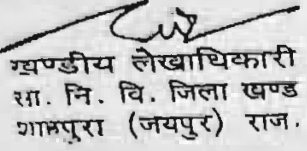 खण्डीय लेखाधिकारी
सा. नि. वि. जिला खण्ड
शाहपुरा (जयपुर) राज.